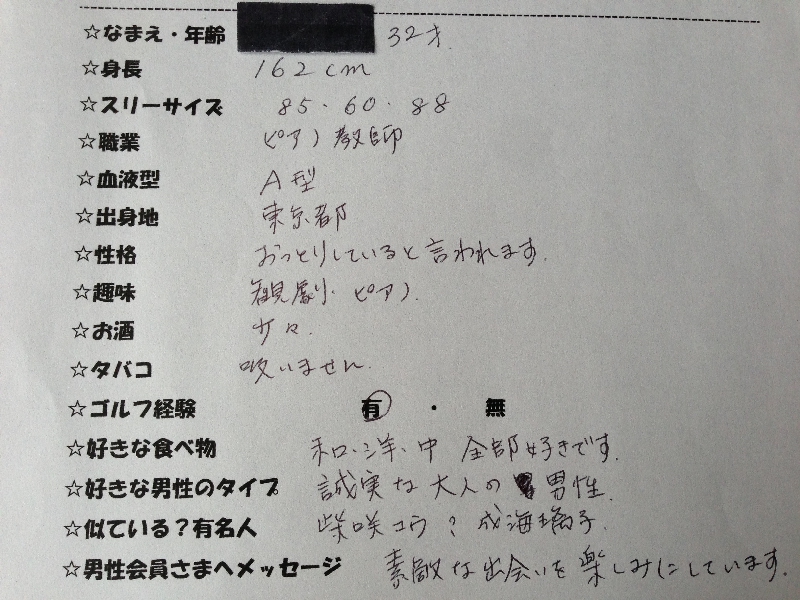 ☆なまえ・年齢 32才.
☆身長 162cm
☆スリーサイズ 85.60.88
☆職業 ピアノ教師
☆血液型 A型
☆出身地 東京都
☆性格 おっとりしていると言われます.
☆趣味 観劇. ピアノ.
☆お酒 少々.
☆タバコ 吸いません.
☆ゴルフ経験 有 ・ 無
☆好きな食べ物 和.洋.中 全部好きです.
☆好きな男性のタイプ 誠実な大人の男性.
☆似ている？有名人 柴咲コウ? 成海璃子.
☆男性会員さまへメッセージ 素敵な出会いを楽しみにしています.